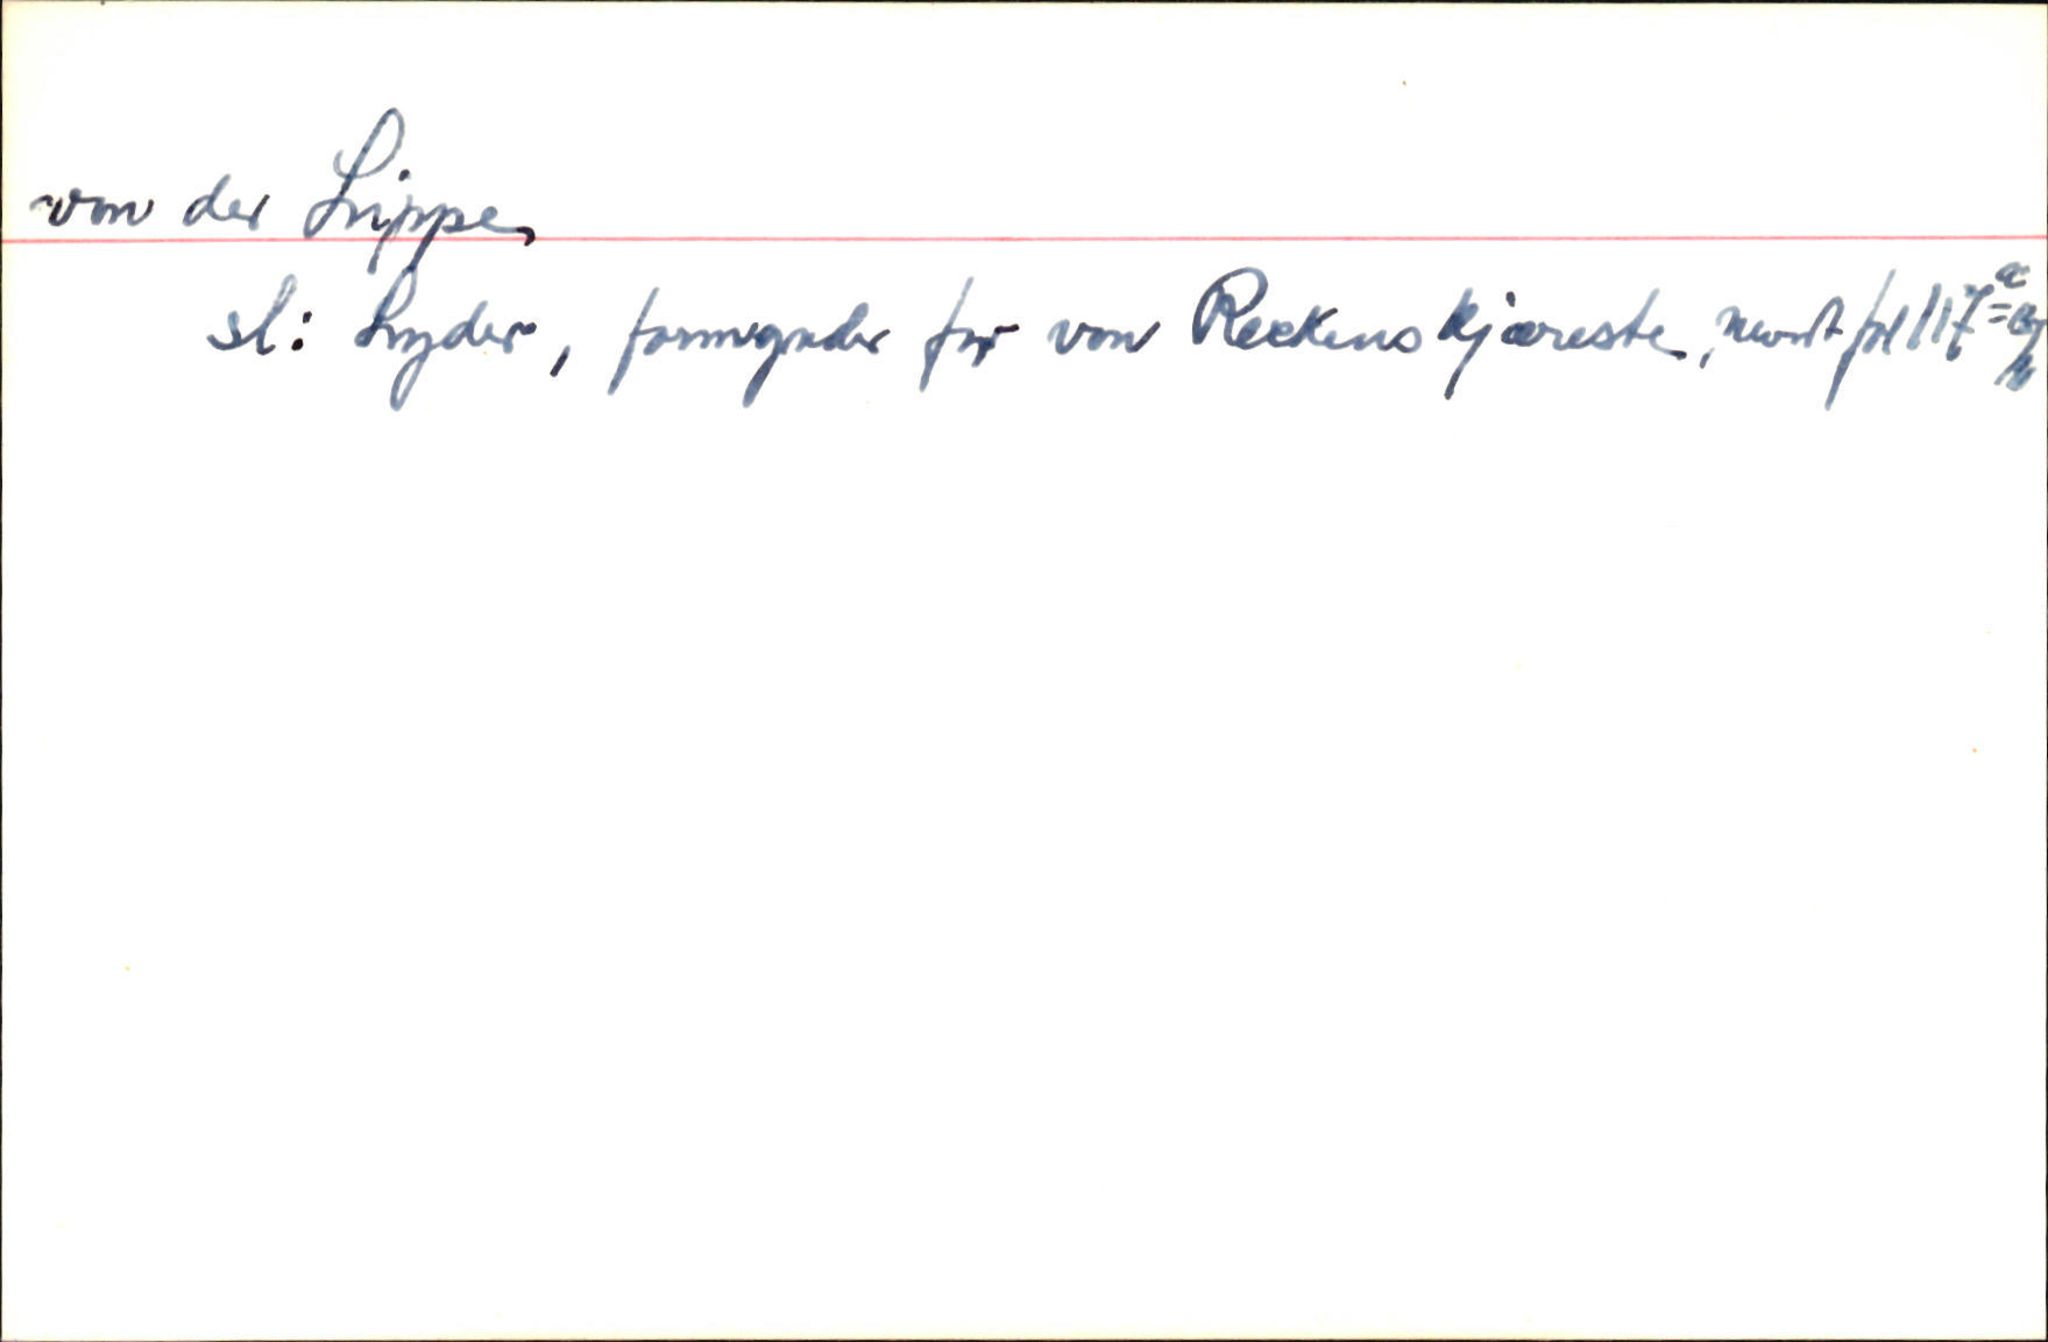 von der Lippe,
sl: Lyder, formynder for von Reckens kjæreste, nevnt fol 117a